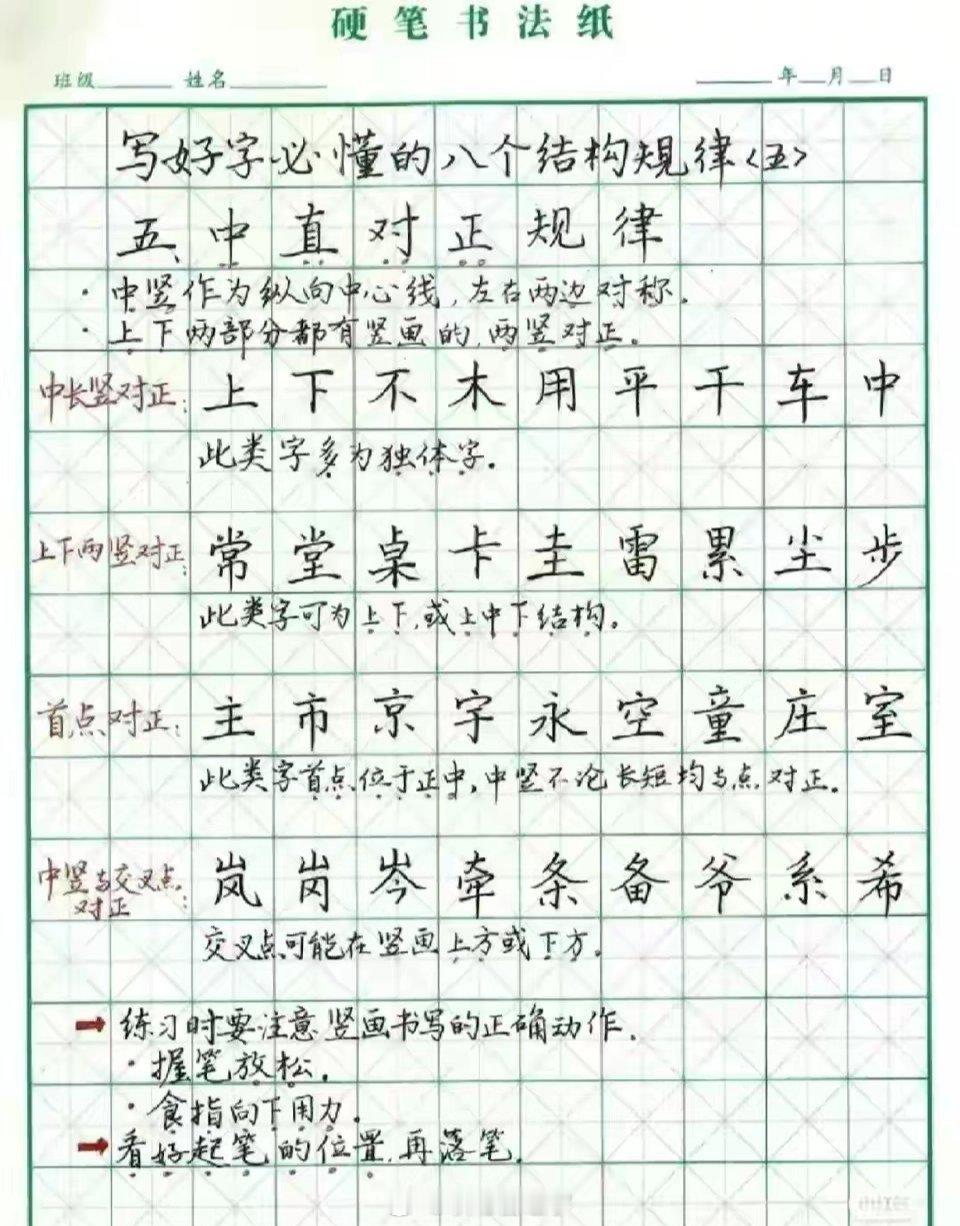 硬笔书法纸
班级 姓名 年 月 日
写好字必懂的八个结构规律<五>
五、中直对正规律
·中竖作为纵向中心线,左右两边对称.
·上下两部分都有竖画的,两竖对正。
中长竖对正: 上下不木用平干车中
此类字多为独体字.
上下两竖对正: 常堂桌卡圭雷累尘步
此类字可为上下,或上中下结构.
首点对正: 主市京字永空童庄室
此类字首点位于正中,中竖不论长短均与点对正.
中竖与交叉点对正: 岚岗岑牵条备爷系希
交叉点可能在竖画上方或下方.
➡练习时要注意竖画书写的正确动作.
·握笔放松.
·食指向下用力.
➡看好起笔的位置,再落笔.